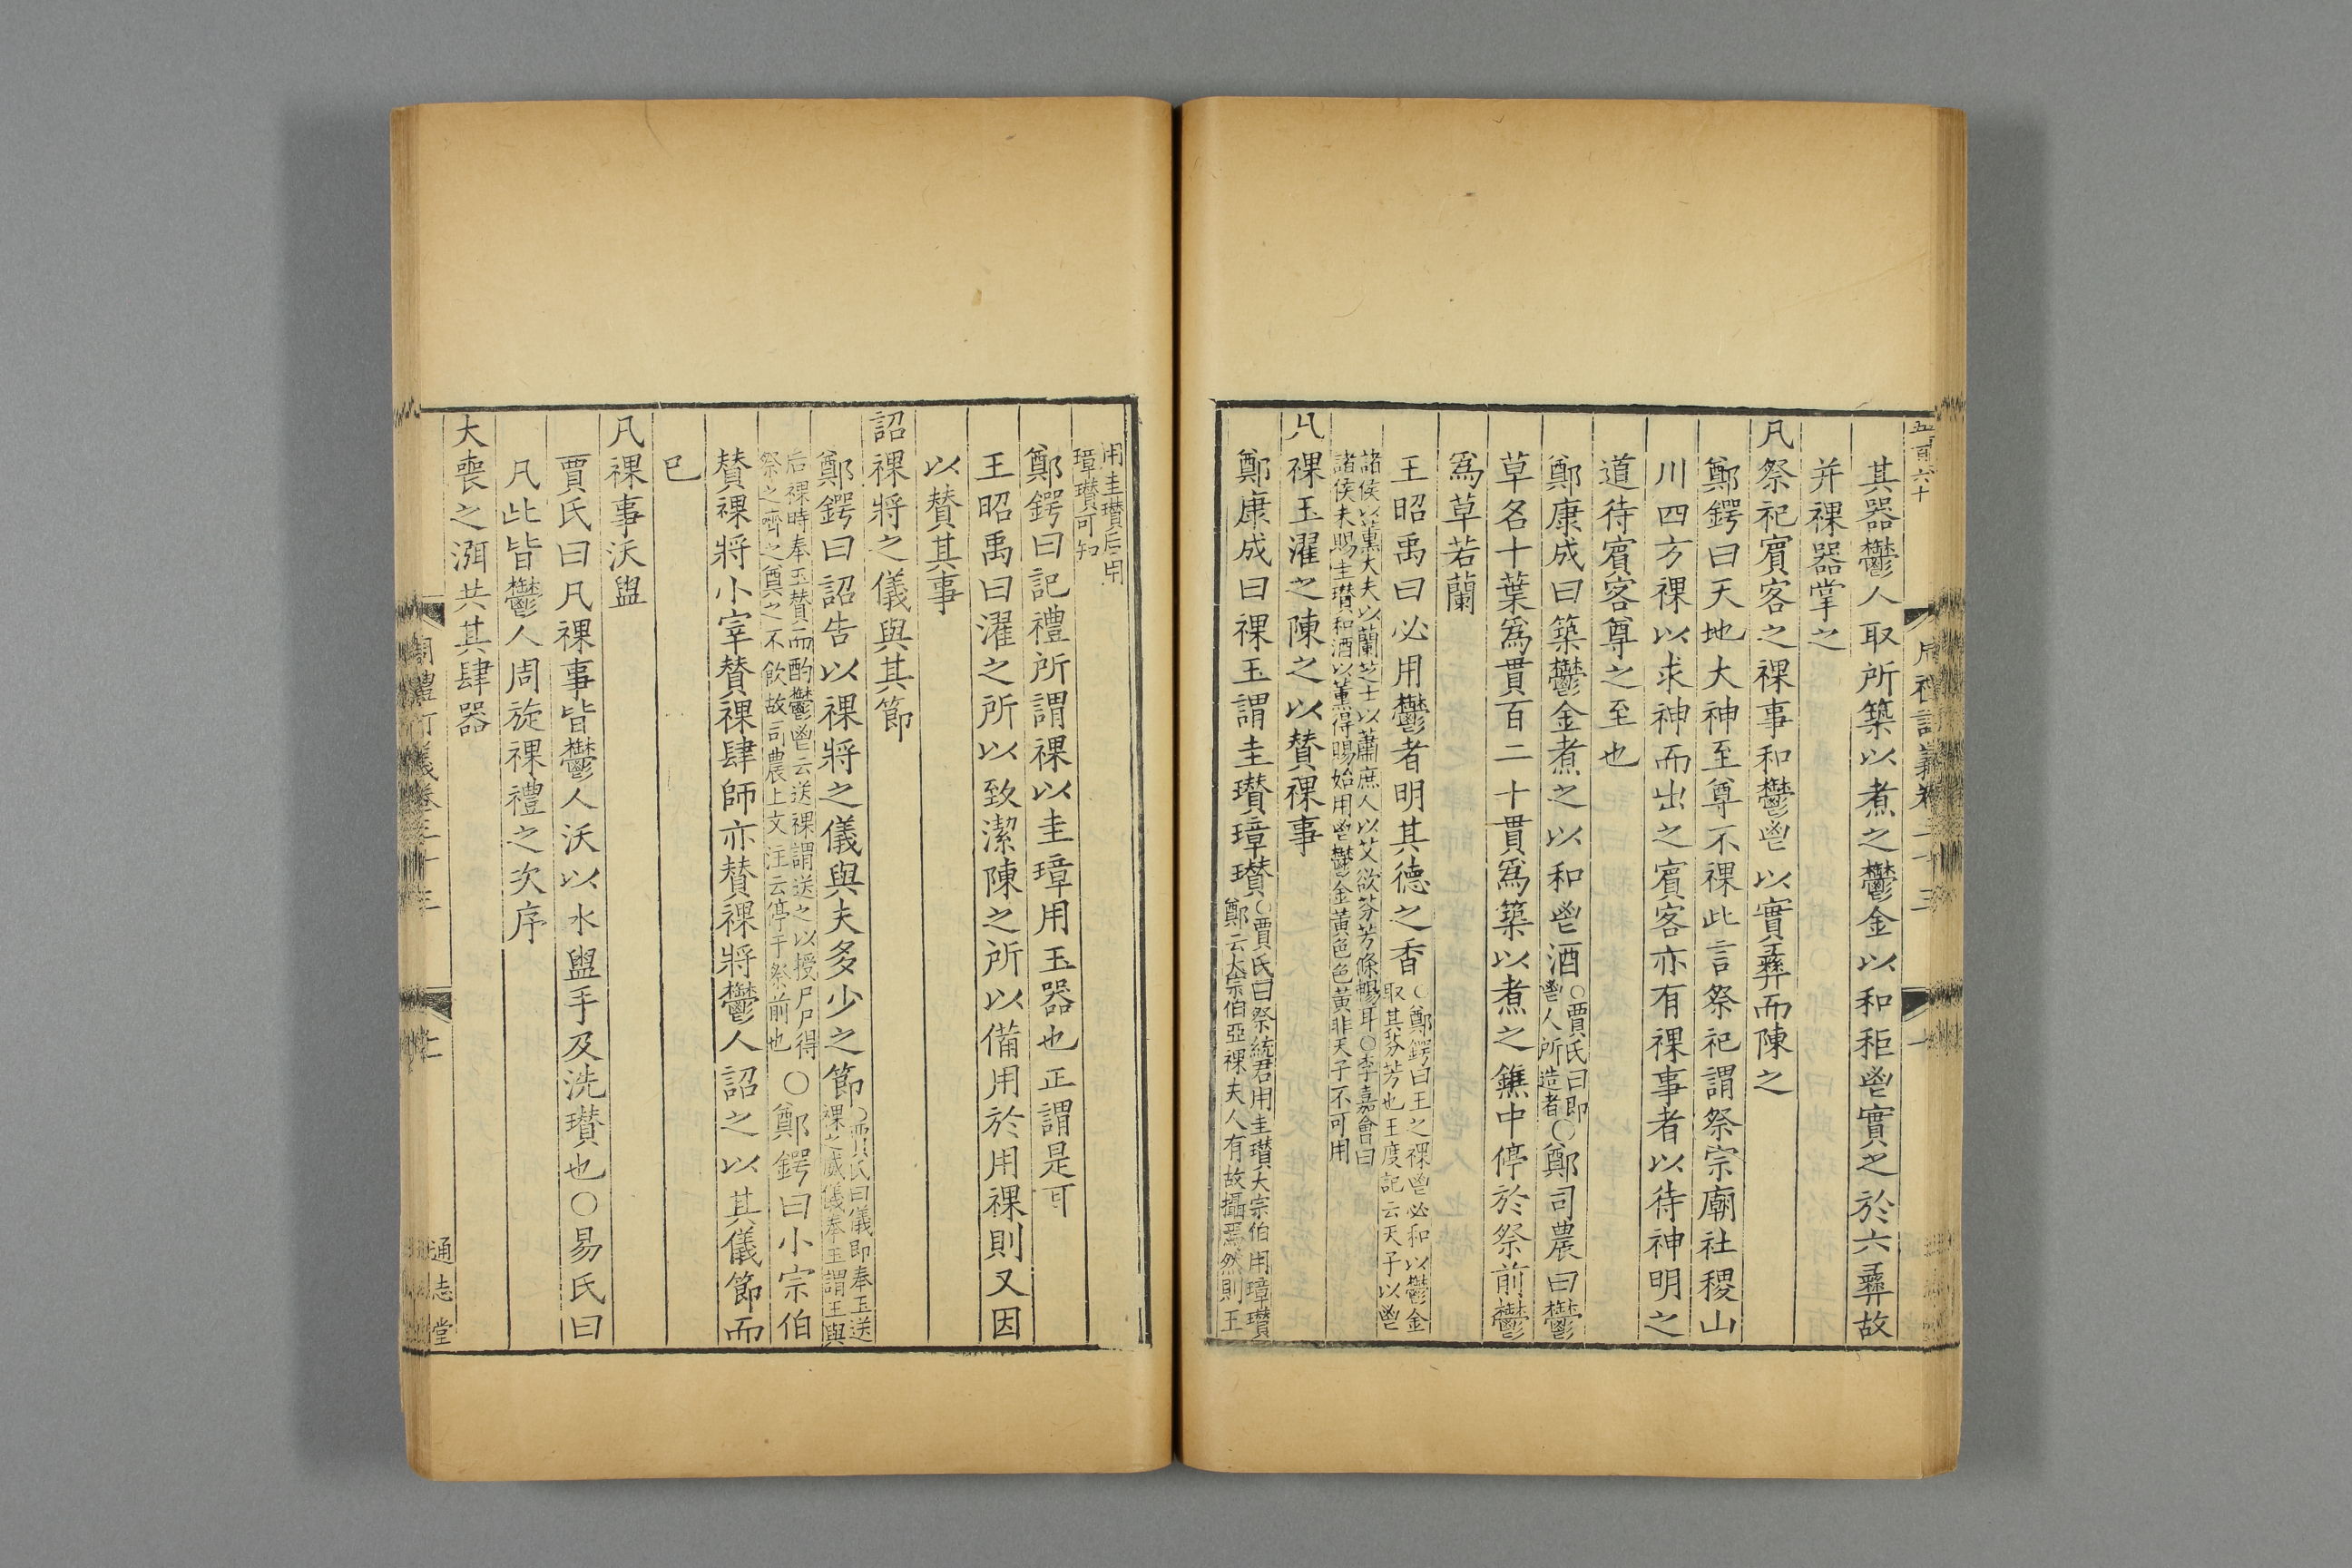 五百六十
其器鬱人取所築以煮之鬱金以和秬鬯實之於六彝故
并祼器掌之
凡祭祀賓客之祼事和鬱鬯以實彝而陳之
鄭鍔曰天地大神至尊不祼此言祭祀謂祭宗廟社稷山
川四方祼以求神而出之賓客亦有祼事者以待神明之
道待賓客尊之至也
鄭康成曰築鬱金煮之以和鬯酒○賈氏曰即鬯人所造者○鄭司農曰鬱
草名十葉爲貫百二十貫爲築以煮之鐎中停於祭前鬱
爲草若蘭
王昭禹曰必用鬱者明其德之香○鄭鍔曰王之祼鬯必和以鬱金取其芬芳也王度記云天子以鬯
諸侯以薰大夫以蘭芝士以蕭庶人以艾欲芬芳條暢耳○李嘉會曰諸侯未賜圭瓚和酒以薰得賜始用鬯鬱金黃色色黃非天子不可用
凡祼玉濯之陳之以贊祼事
鄭康成曰祼玉謂圭瓚璋瓚○賈氏曰祭統君用圭瓚大宗伯用璋瓚鄭云大宗伯亞祼夫人有故攝焉然則王
用圭瓚后用璋瓚可知
鄭鍔曰記禮所謂祼以圭璋用玉器也正謂是可
王昭禹曰濯之所以致潔陳之所以備用於用祼則又因
以贊其事
詔祼將之儀與其節
鄭鍔曰詔告以祼將之儀與夫多少之節○賈氏曰儀即奉玉送祼之威儀奉玉謂王與
后祼時奉玉贊而酌鬱鬯云送祼謂送之以授尸尸得祭之嚌之奠之不飲故司農上文注云停于祭前也○鄭鍔曰小宗伯
贊祼將小宰贊祼肆師亦贊祼將鬱人詔之以其儀節而
已
凡祼事沃盥
賈氏曰凡祼事皆鬱人沃以水盥手及洗瓚也○易氏曰
凡此皆鬱人周旋祼禮之次序
大喪之渳共其肆器
通志堂